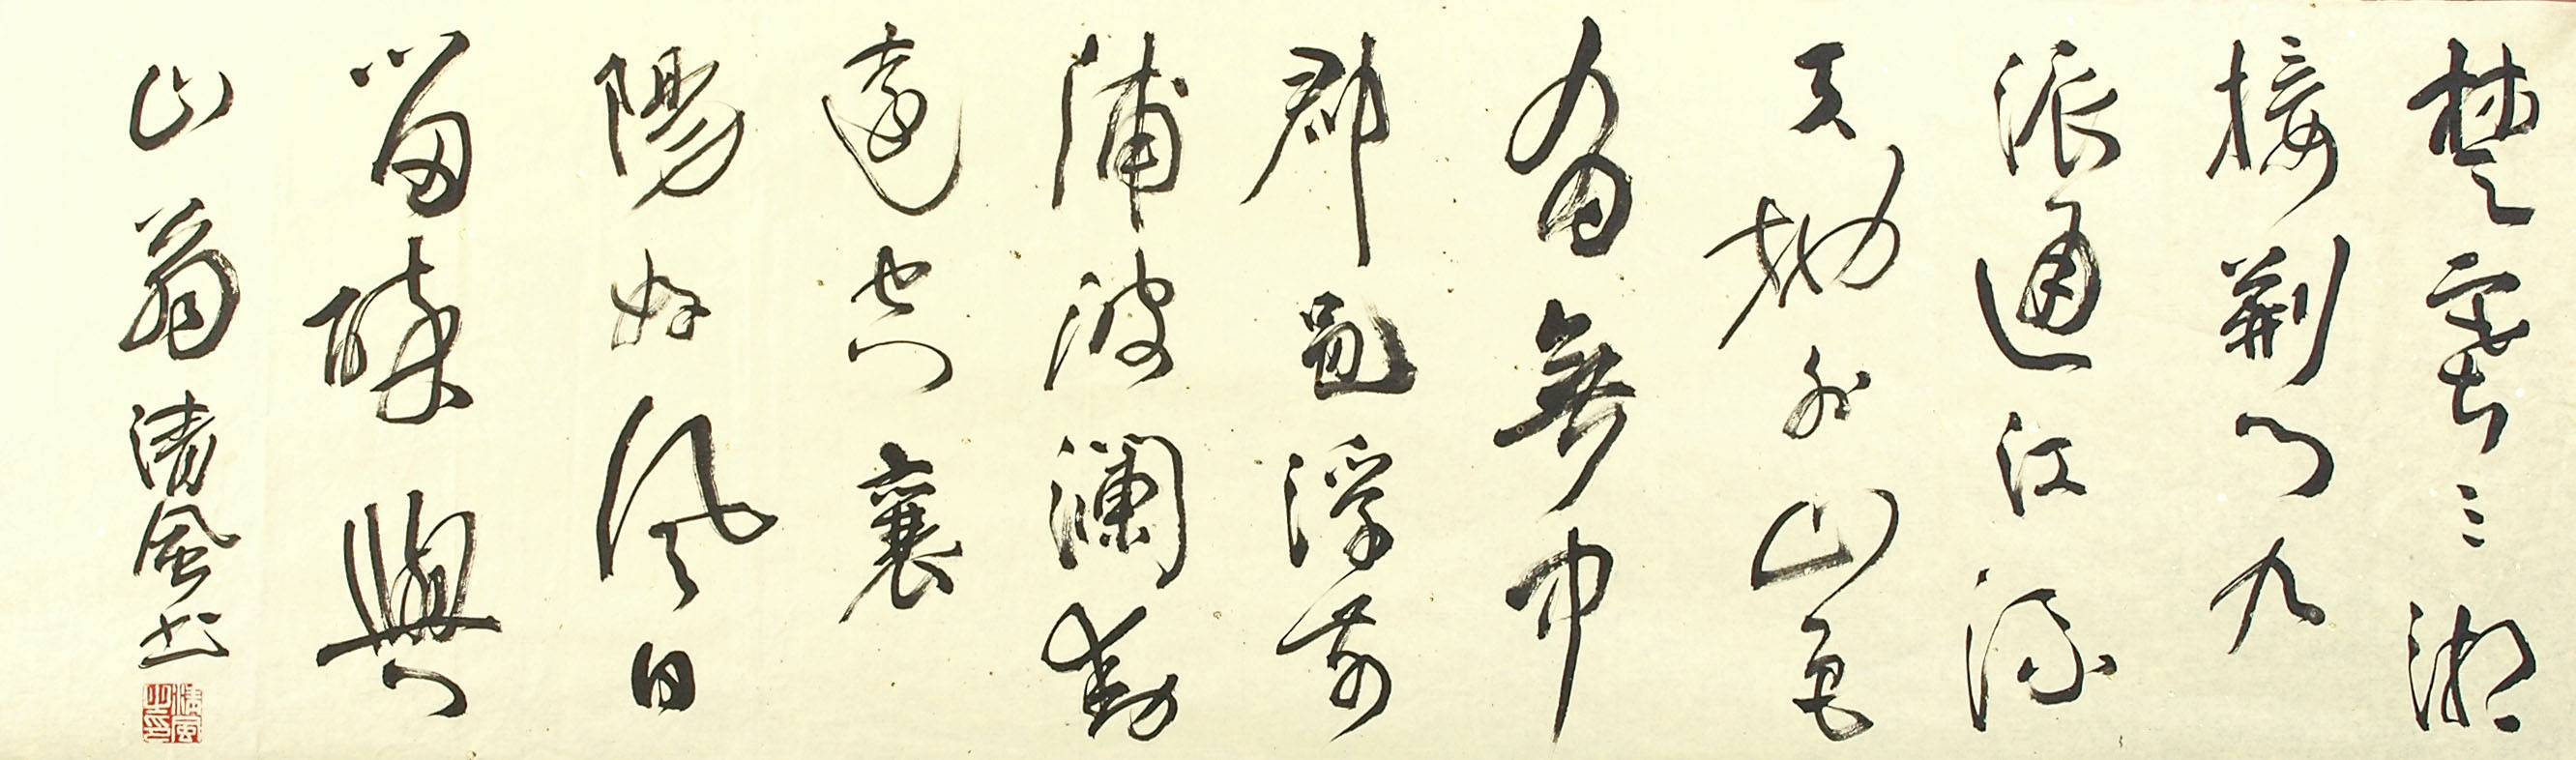 楚塞三湘
接荆門九
派通江流
天地外山色
有無中
郡邑浮前
浦波瀾動
遠空襄
陽好風日
留醉與
山翁清風書
清風之印